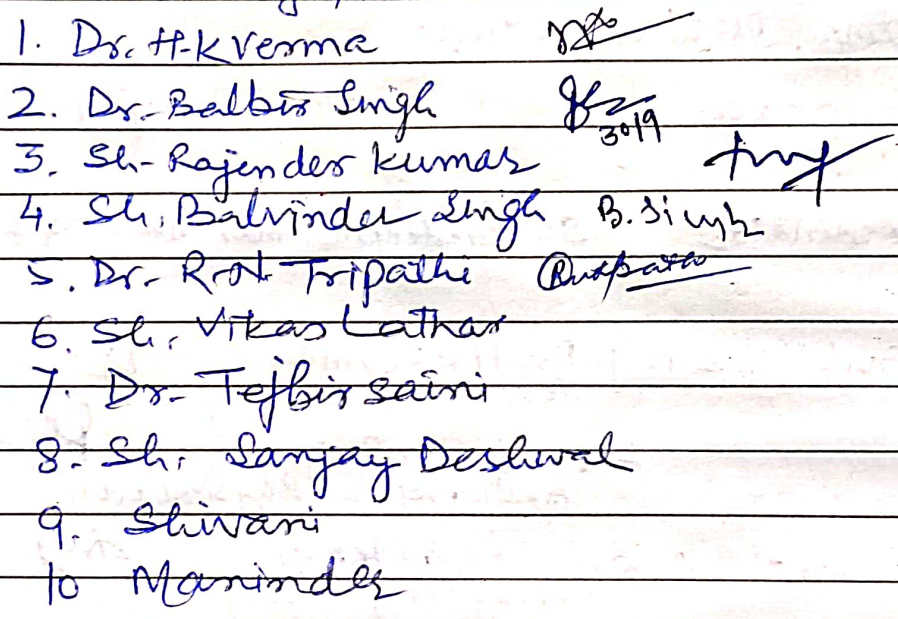 1. Dr. H.K Verma
2. Dr. Balbir Singh
3019
3. Sh. Rajender Kumar
4. Sh. Balvinder Singh B. Singh
5. Dr. R.N. Tripathi
6. Sh. Vikas Lathar
7. Dr. Tejbir Saini
8. Sh. Sanjay Deshwal
9. Shivani
10 Maninder